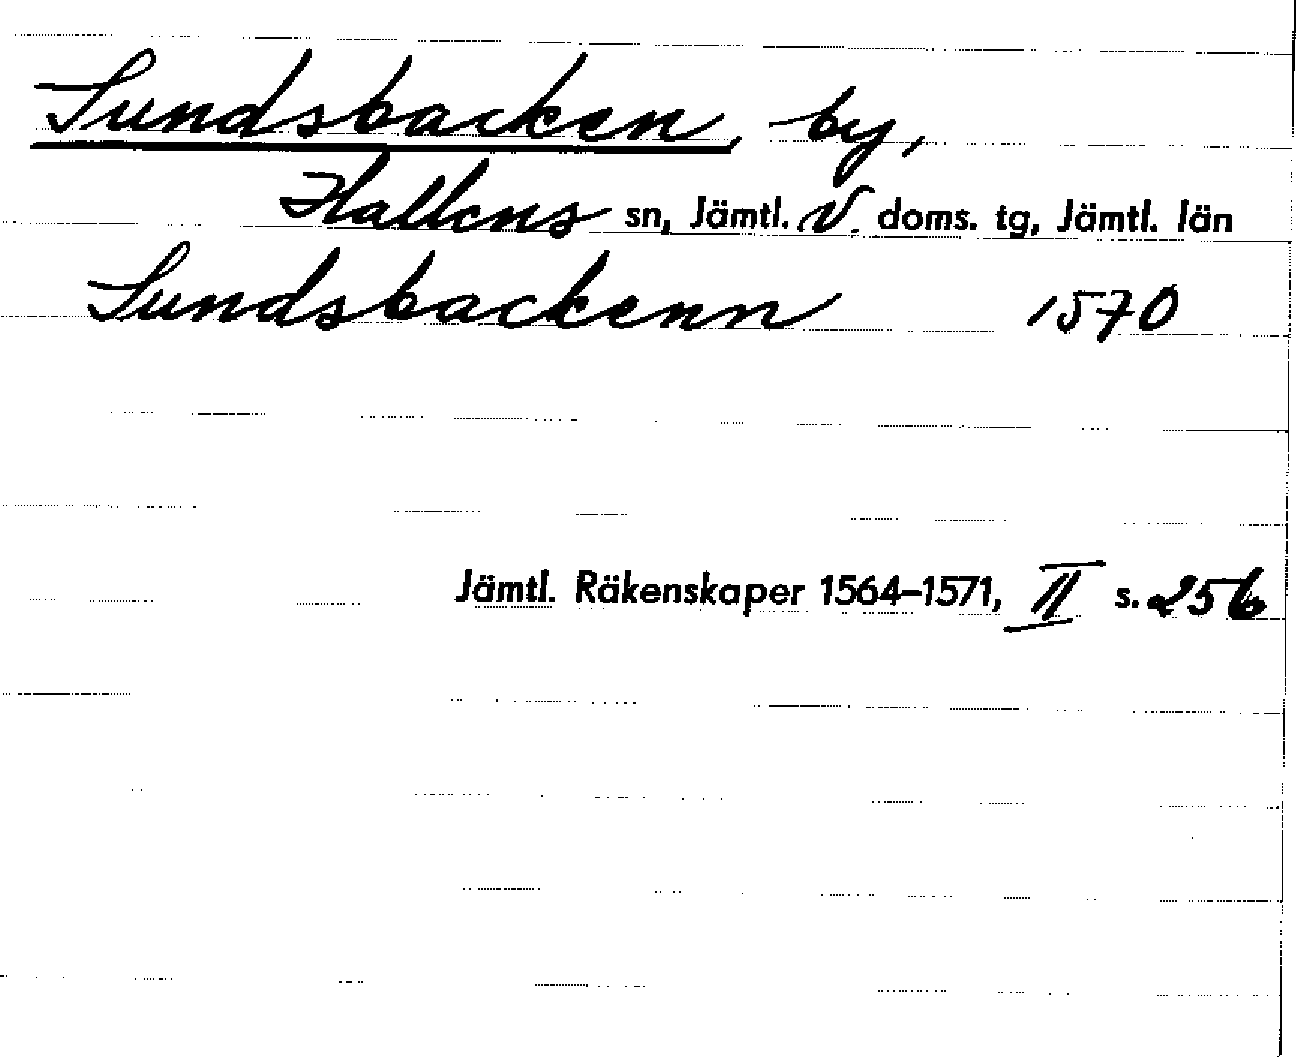 Sundsbacken, by,
Hallens sn, Jämtl. V. doms. tg, Jämtl. län
Sundsbackenn 1570
Jämtl. Räkenskaper 1564–1571, II s. 256